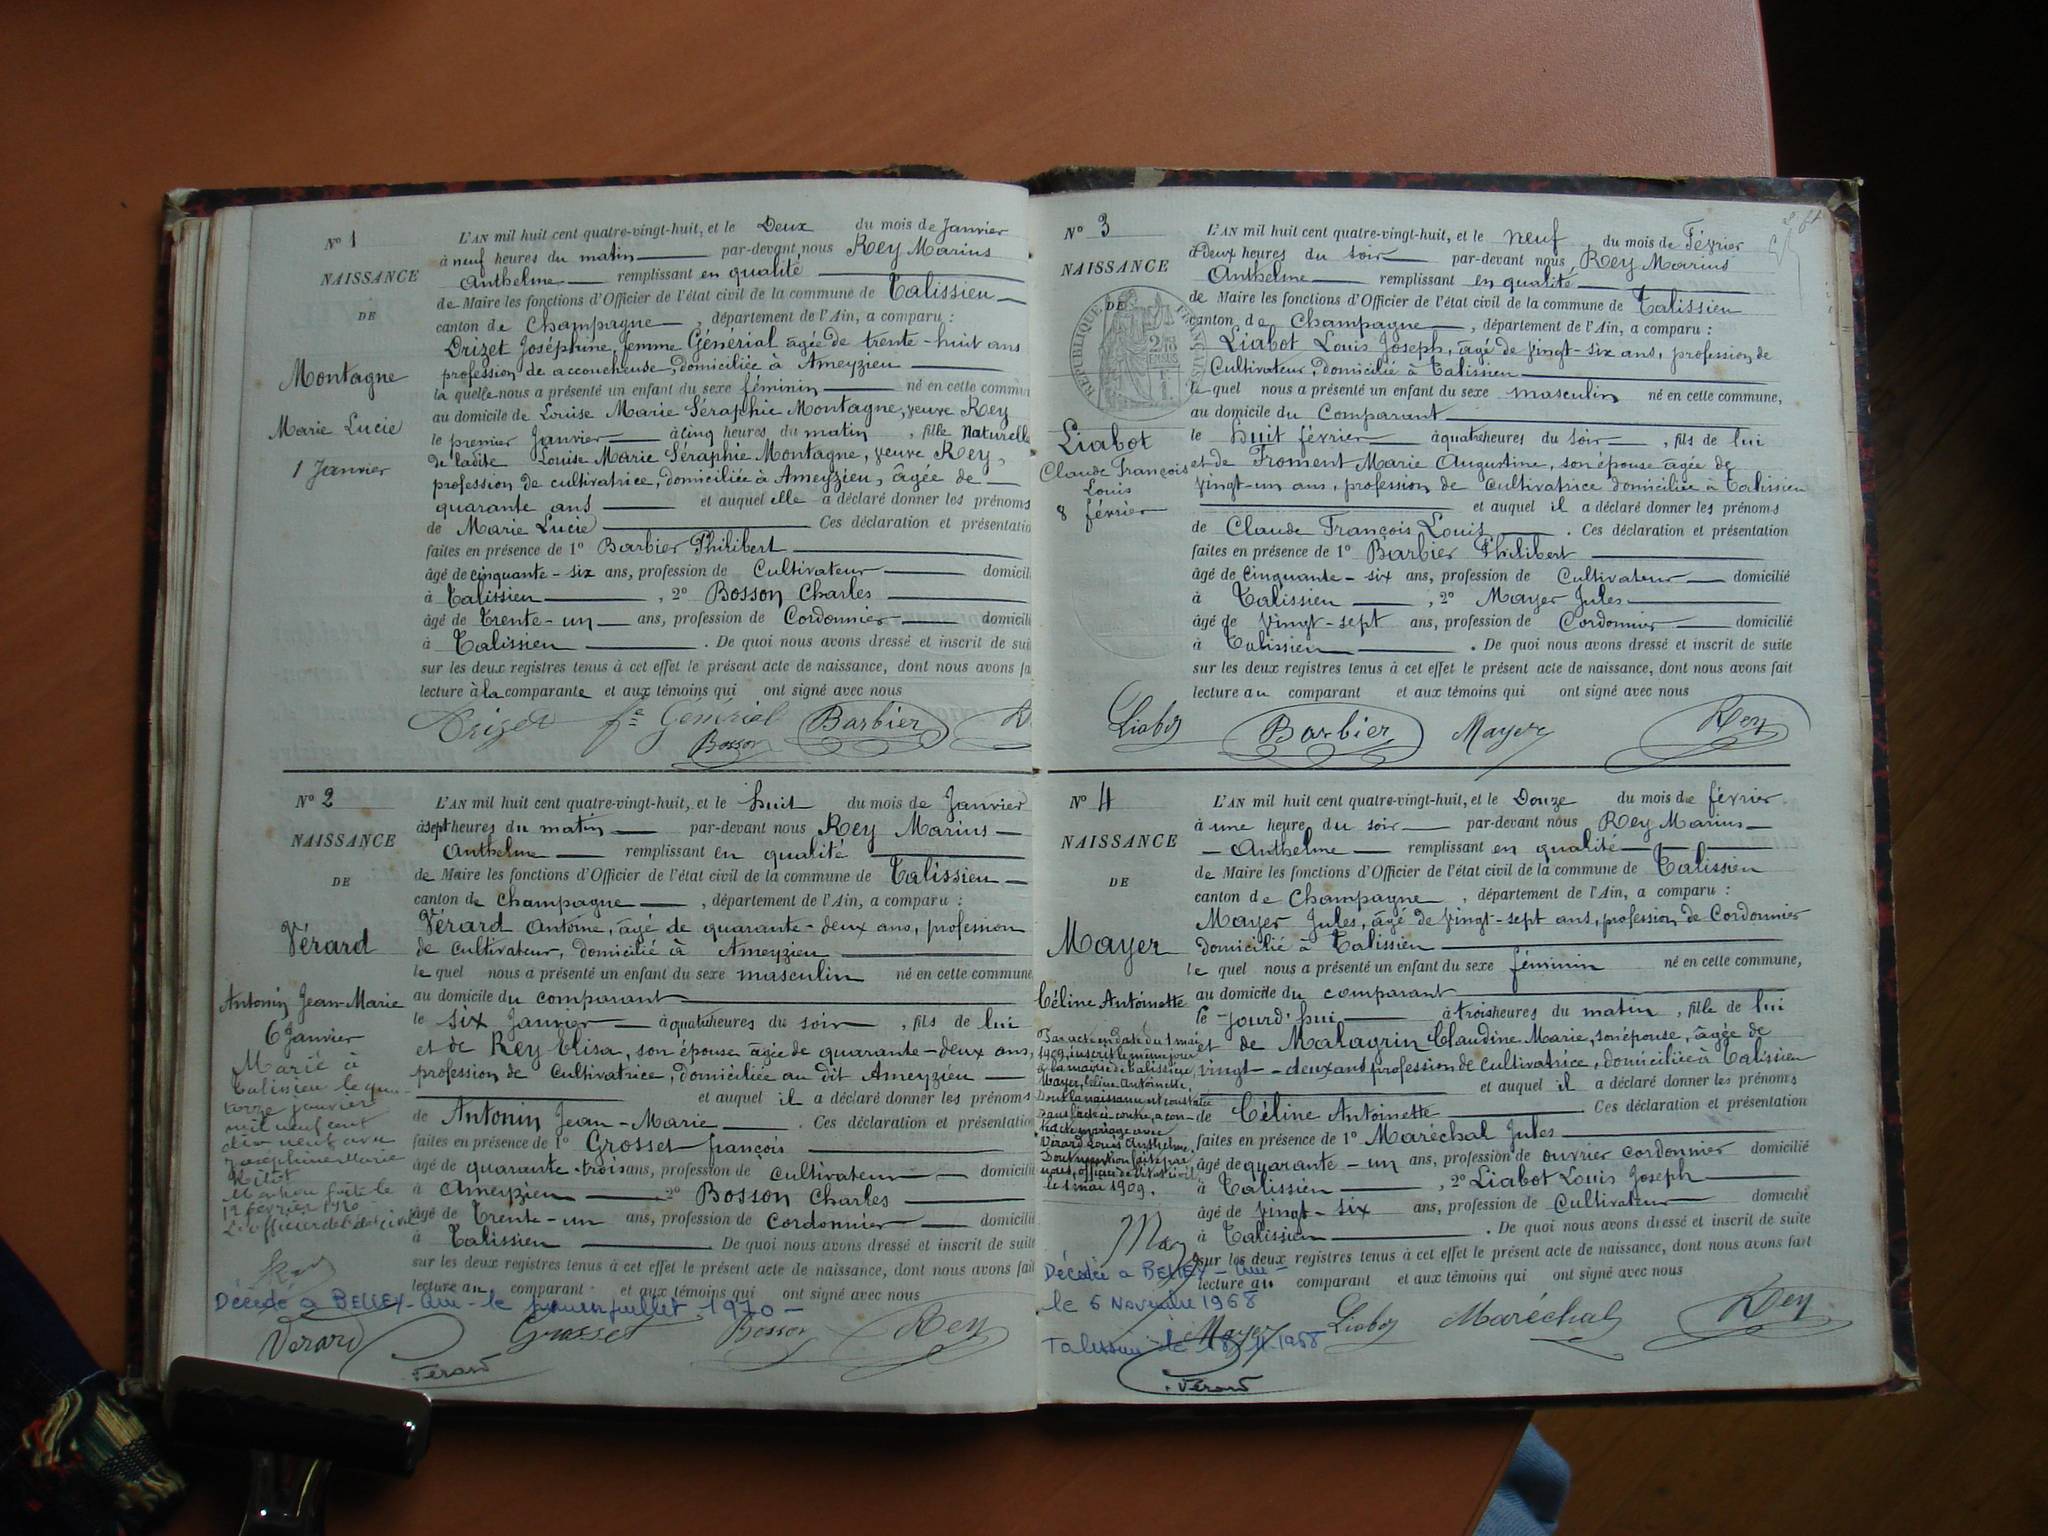 N° 1
NAISSANCE
DE
Montagne
Marie Lucie
1 Janvier
L'AN mil huit cent quatre-vingt-huit, et le Deux du mois de Janvier
à neuf heures du matin par-devant nous Rey Marius
Anthelme remplissant en qualité
de Maire les fonctions d'Officier de l'état civil de la commune de Talissieu
canton de Champagne, département de l'Ain, a comparu :
Drizet Joséphine, femme Générial âgée de trente-huit ans
profession de accoucheuse, domiciliée à Ameyzieu
la quelle nous a présenté un enfant du sexe féminin né en cette commun
au domicile de Louise Marie Séraphie Montagne, veuve Rey
le premier Janvier à cinq heures du matin, fille Naturelle
de ladite Louise Marie Séraphie Montagne, veuve Rey,
profession de cultivatrice, domiciliée à Ameyzieu, âgée de
quarante ans et auquel elle a déclaré donner les prénoms
de Marie Lucie Ces déclaration et présentatio
faites en présence de 1° Barbier Philibert
âgé de cinquante-six ans, profession de Cultivateur domicili
à Talissieu, 2° Bosson Charles
âgé de Trente-un ans, profession de Cordonnier domicili
à Talissieu. De quoi nous avons dressé et inscrit de sui
sur les deux registres tenus à cet effet le présent acte de naissance, dont nous avons fa
lecture à la comparante et aux témoins qui ont signé avec nous
Drizet fe Génériel Barbier
Bosson
N° 2
NAISSANCE
DE
Vérard
Antonin Jean-Marie
6 Janvier
Marié à
Talissieu le qua-
torze janvier
mil neuf cent
dix neuf avec
Joséphine Marie
Mention faite le
12 février 1920
L'officier de l'état civil
L'AN mil huit cent quatre-vingt-huit, et le huit du mois de Janvier
à sept heures du matin par-devant nous Rey Marius
Anthelme remplissant en qualité
de Maire les fonctions d'Officier de l'état civil de la commune de Talissieu
canton de Champagne, département de l'Ain, a comparu :
Vérard Antoine, âgé de quarante-deux ans, profession
de cultivateur, domicilié à Ameyzieu
le quel nous a présenté un enfant du sexe masculin né en cette commune
au domicile du comparant
le six Janvier à quatre heures du soir, fils de lui
et de Rey Elisa, son épouse âgée de quarante-deux ans,
profession de Cultivatrice, domiciliée au dit Ameyzieu
et auquel il a déclaré donner les prénoms
de Antonin Jean-Marie. Ces déclaration et présentation
faites en présence de 1° Grosset françois
âgé de quarante-trois ans, profession de cultivateur domicilié
à Ameyzieu 2° Bosson Charles
âgé de Trente-un ans, profession de Cordonnier domicilié
à Talissieu De quoi nous avons dressé et inscrit de suite
sur les deux registres tenus à cet effet le présent acte de naissance, dont nous avons fait
lecture au comparant et aux témoins qui ont signé avec nous
Décédé à BELLEY - Ain - le juillet 1970 -
Verard Grosset Bosson Rey
Férard
N° 3
NAISSANCE
DE
RÉPUBLIQUE FRANÇAISE
Liabot
Claude François
Louis
8 février
L'AN mil huit cent quatre-vingt-huit, et le neuf du mois de Février
à deux heures du soir par-devant nous Rey Marius
Anthelme remplissant en qualité
de Maire les fonctions d'Officier de l'état civil de la commune de Talissieu
canton de Champagne, département de l'Ain, a comparu :
Liabot Louis Joseph, âgé de vingt-six ans, profession de
Cultivateur, domicilié à Talissieu
le quel nous a présenté un enfant du sexe masculin né en cette commune,
au domicile du Comparant
le huit février à quatre heures du soir, fils de lui
et de Froment Marie Augustine, son épouse âgée de
vingt-un ans, profession de cultivatrice domiciliée à Talissieu
et auquel il a déclaré donner les prénoms
de Claude François Louis. Ces déclaration et présentation
faites en présence de 1° Barbier Philibert
âgé de cinquante-six ans, profession de Cultivateur domicilié
à Talissieu, 2° Mayer Jules
âgé de vingt-sept ans, profession de Cordonnier domicilié
à Talissieu. De quoi nous avons dressé et inscrit de suite
sur les deux registres tenus à cet effet le présent acte de naissance, dont nous avons fait
lecture au comparant et aux témoins qui ont signé avec nous
Liabot Barbier Mayer Rey
N° 4
NAISSANCE
DE
Mayer
Céline Antoinette
Par acte en date du 1 mai
1909, inscrit le même jour
à la mairie de Talissieu,
Mayer, Céline Antoinette,
Dont la naissance est constatée
dans l'acte ci-contre, a con-
tracté mariage avec
Vérard Louis Anthelme.
Dont mention faite par
nous, officier de l'état civil
le 1 mai 1909.
L'AN mil huit cent quatre-vingt-huit, et le Douze du mois de février
à une heure du soir par-devant nous Rey Marius
Anthelme remplissant en qualité
de Maire les fonctions d'Officier de l'état civil de la commune de Talissieu
canton de Champagne, département de l'Ain, a comparu :
Mayer Jules, âgé de vingt-sept ans, profession de Cordonnier
domicilié à Talissieu
le quel nous a présenté un enfant du sexe féminin né en cette commune,
au domicile du comparant
le jourd'hui à trois heures du matin, fille de lui
et de Malagrin Claudine Marie, son épouse, âgée de
vingt-deux ans profession de cultivatrice, domiciliée à Talissieu
et auquel il a déclaré donner les prénoms
de Céline Antoinette Ces déclaration et présentation
faites en présence de 1° Maréchal Jules
âgé de quarante-un ans, profession de ouvrier cordonnier domicilié
à Talissieu, 2° Liabot Louis Joseph
âgé de vingt-six ans, profession de Cultivateur domicilié
à Talissieu. De quoi nous avons dressé et inscrit de suite
sur les deux registres tenus à cet effet le présent acte de naissance, dont nous avons fait
lecture au comparant et aux témoins qui ont signé avec nous
Décédée à BELLEY - Ain -
le 6 Novembre 1968
Talissieu le 18.11.1968
Mayer Liabot Maréchal Rey
Vérard